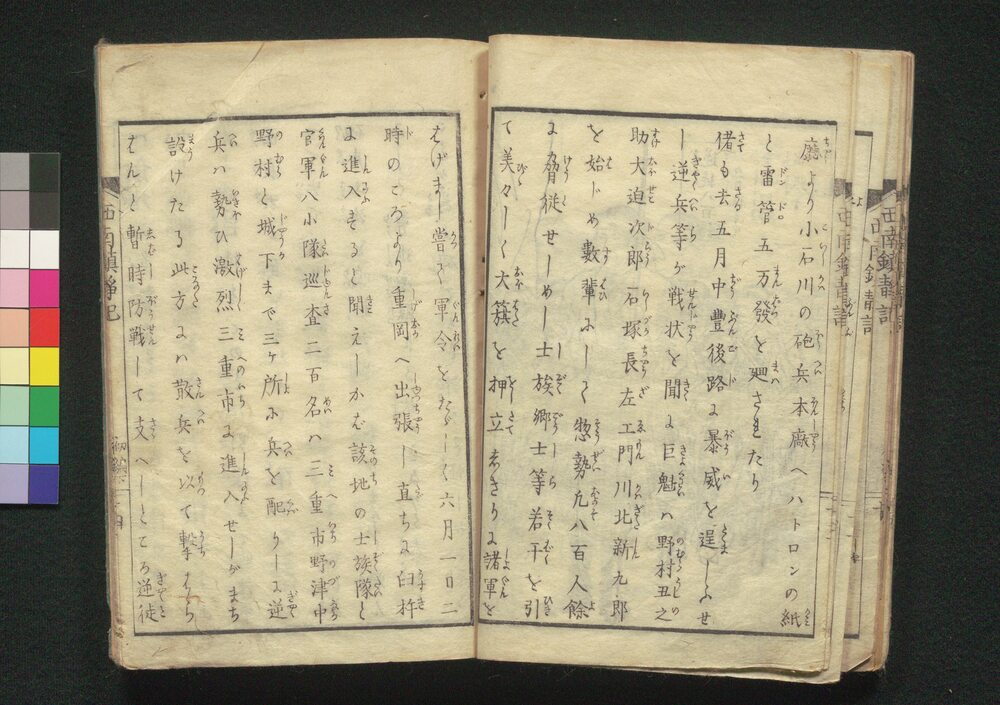 廳より小石川の砲兵本廠へハトロンの紙
と雷管五万發を廻されたり
偖も去五月中豊後路に暴威を逞しふせ
し逆兵等が戦状を聞に巨魁ハ野村丑之
助大迫次郎石塚長左エ門川北新九郎
を始トめ數輩にして惣勢凡八百人餘
に脅従せしめし士族郷士等若干を引
て美々しく大籏を押立しきりに諸軍を
はげまし嘗て軍令をたゞしく六月一日二
時のころより重岡へ出張し直ちに臼杵
に進入すると聞えしかば該地の士族隊と
官軍八小隊巡査二百名ハ三重市野津中
野村と城下まで三ヶ所に兵を配りしに逆
兵ハ勢ひ激烈三重市に進入せしがまち
設けたる此方にハ散兵を以て撃はら
はんと暫時防戦して支へしところ逆徒
西南鎮静記